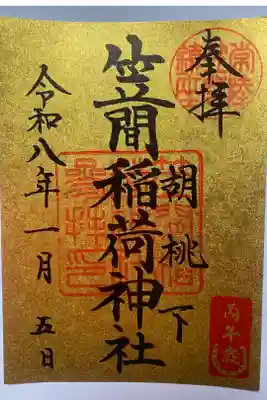 奉拝
胡桃下
笠間稲荷神社
令和八年一月五日
丙午歳